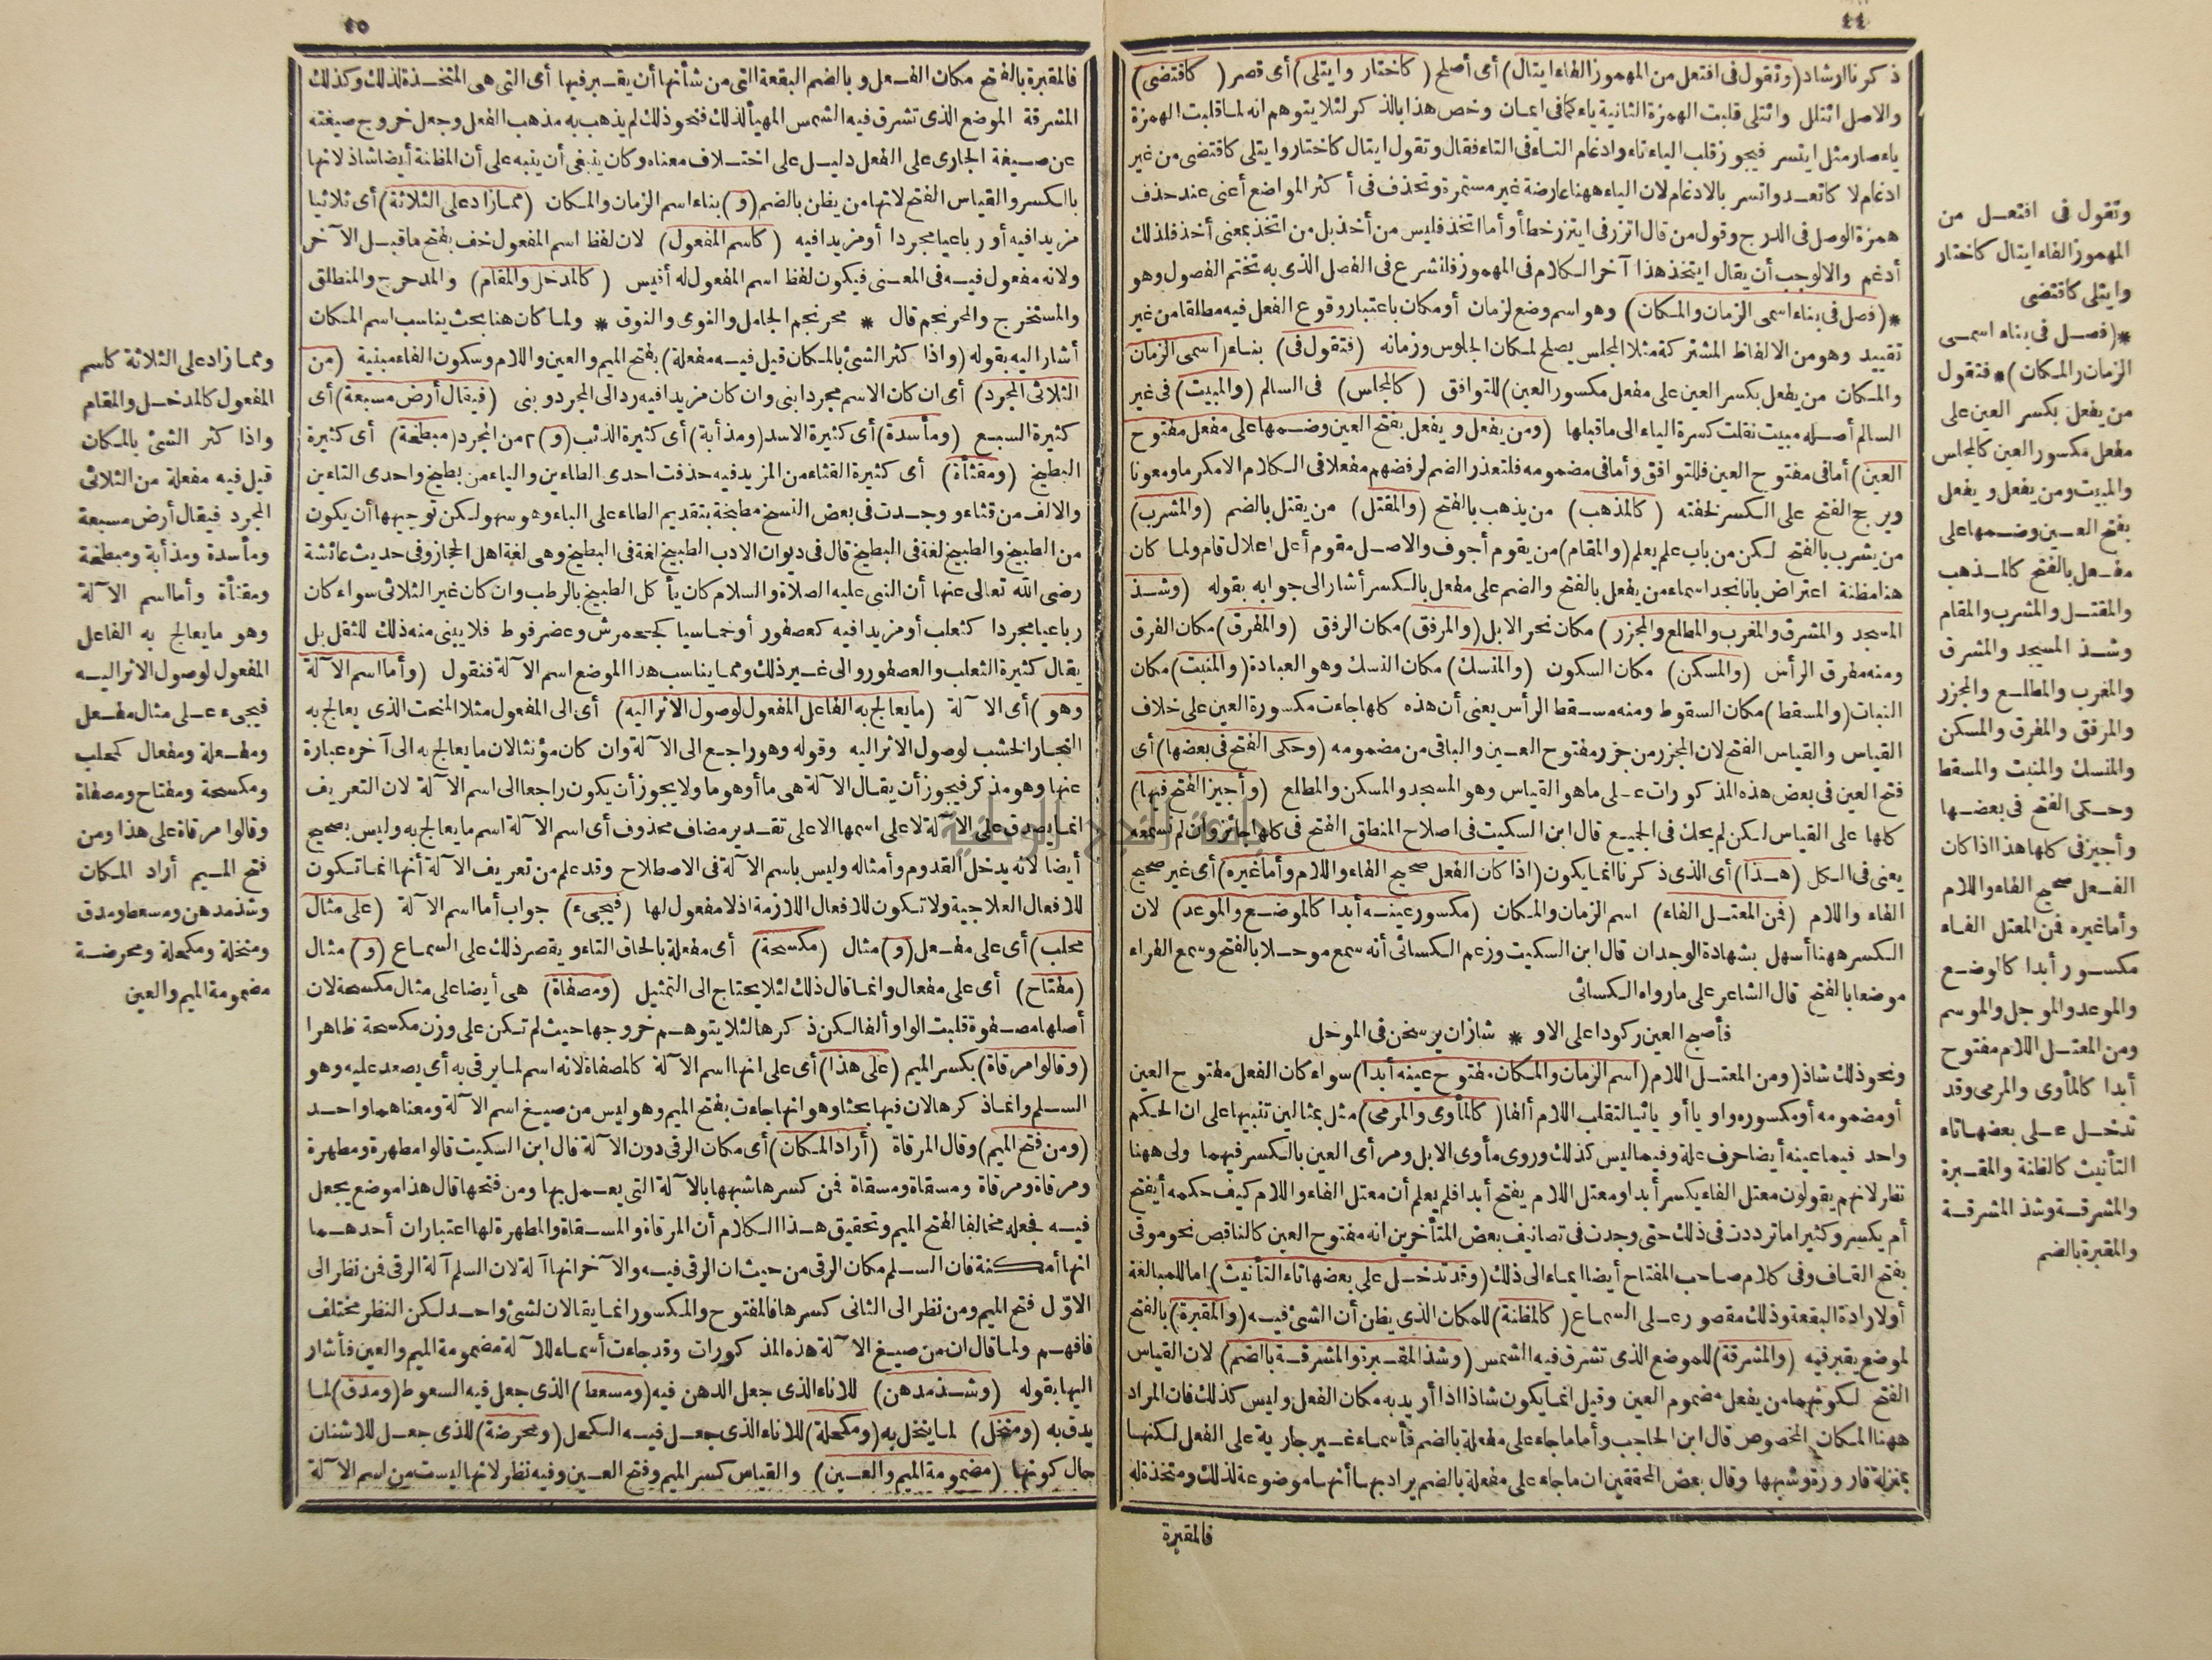 ٤٤
ذكرنا ارشاد (وتقول فى افتعل من المهموز الفاء ايتال) أى أصلح (كاختار وايتلى) أى قصر (كاقتضى)
والاصل ائتلل وائتلى قلبت الهمزة الثانية ياء كما فى ايمان وخص هذا بالذكر لئلا يتوهم انه لما قلبت الهمزة
ياء صار مثل ايتسر فيجوز قلب الياء تاء وادغام التاء فى التاء فقال وتقول ايتال كاختار وايتلى كاقتضى من غير
ادغام لا كاتعد واتسر بالادغام لان الياء ههنا عارضة غير مستمرة وتحذف فى أكثر المواضع أعنى عند حذف
همزة الوصل فى الدرج وقول من قال اتزر فى ايتزر خطأ وأما اتخذ فليس من أخذ بل من اتخذ بمعنى أخذ فلذلك
أدغم والا لوجب أن يقال ايتخذ هذا آخر الكلام فى المهموز فلنشرع فى الفصل الذى به تختم الفصول وهو
*(فصل فى بناء اسمى الزمان والمكان) وهو اسم وضع لزمان أو مكان باعتبار وقوع الفعل فيه مطلقا من غير
تقييد وهو من الالفاظ المشتركة مثلا المجلس يصلح لمكان الجلوس وزمانه (فتقول فى) بناء (اسمى الزمان
والمكان من يفعل بكسر العين على مفعل مكسور العين) للتوافق (كالمجلس) فى السالم (والمبيت) فى غير
السالم أصله مبيت نقلت كسرة الياء الى ما قبلها (ومن يفعل ويفعل بفتح العين وضمها على مفعل مفتوح
العين) أما فى مفتوح العين فللتوافق وأما فى مضمومه فلتعذر الضم لرفضهم مفعلا فى الكلام الا مكرما ومعونا
ويرجح الفتح على الكسر لخفته (كالمذهب) من يذهب بالفتح (والمقتل) من يقتل بالضم (والمشرب)
من يشرب بالفتح لكن من باب علم يعلم (والمقام) من يقوم أجوف والاصل مقوم أعل اعلال قام ولما كان
هنا مظنة اعتراض بانا نجد اسماء من يفعل بالفتح والضم على مفعل بالكسر أشار الى جوابه بقوله (وشذ
المسجد والمشرق والمغرب والمطلع والمجزر) مكان نحر الابل (والمرفق) مكان الرفق (والمفرق) مكان الفرق
ومنه مفرق الرأس (والمسكن) مكان السكون (والمنسك) مكان النسك وهو العبادة (والمنبت) مكان
النبات (والمسقط) مكان السقوط ومنه مسقط الرأس يعنى أن هذه كلها جاءت مكسورة العين على خلاف
القياس والقياس الفتح لان المجزر من جزر مفتوح العين والباقى من مضمومه (وحكى الفتح فى بعضها) أى
فتح العين فى بعض هذه المذكورات على ما هو القياس وهو المسجد والمسكن والمطلع (وأجيز الفتح فيها)
كلها على القياس لكن لم يحك فى الجميع قال ابن السكيت فى اصلاح المنطق الفتح فى كلها جائز وان لم نسمعه
يعنى فى الكل (هذا) أى الذى ذكرنا انما يكون (اذا كان الفعل صحيح الفاء واللام وأما غيره) أى غير صحيح
الفاء واللام (فمن المعتل الفاء) اسم الزمان والمكان (مكسور عينه أبدا كالموضع والموعد) لان
الكسر ههنا أسهل بشهادة الوجدان قال ابن السكيت وزعم الكسائى أنه سمع موحلا بالفتح وسمع الفراء
موضعا بالفتح قال الشاعر على ما رواه الكسائى
فأصبح العين ركودا على الاو * شاز ان يرسخن فى الموحل
ونحو ذلك شاذ (ومن المعتل اللام (اسم الزمان والمكان مفتوح عينه أبدا) سواء كان الفعل مفتوح العين
أو مضمومه أو مكسوره واويا أو يائيا لتقلب اللام ألفا (كالمأوى والمرمى) مثل بمثالين تنبيها على ان الحكم
واحد فيما عينه أيضا حرف علة وفيما ليس كذلك وروى مأوى الابل ومرأى العين بالكسر فيهما ولى ههنا
نظر لانهم يقولون معتل الفاء يكسر أبدا ومعتل اللام يفتح أبدا فلم يعلم أن معتل الفاء واللام كيف حكمه أيفتح
أم يكسر وكثيرا ما ترددت فى ذلك حتى وجدت فى تصانيف بعض المتأخرين انه مفتوح العين كالناقص نحو موقى
بفتح القاف وفى كلام صاحب المفتاح أيضا ايماء الى ذلك (وقد تدخل على بعضها تاء التأنيث) اما للمبالغة
أو لارادة البقعة وذلك مقصور على السماع (كالمظنة) للمكان الذى يظن أن الشئ فيه (والمقبرة) بالفتح
لموضع يقبر فيه (والمشرقة) للموضع الذى تشرق فيه الشمس (وشذ المقبرة والمشرقة بالضم) لان القياس
الفتح لكونهما من يفعل مضموم العين وقيل انما يكون شاذا اذا أريد به مكان الفعل وليس كذلك فان المراد
ههنا المكان المخصوص قال ابن الحاجب وأما ما جاء على مفعلة بالضم فأسماء غير جارية على الفعل لكنها
بمنزلة قارورة وشبهها وقال بعض المحققين ان ما جاء على مفعلة بالضم يراد بها أنها موضوعة لذلك ومتخذة له
فالمقبرة
وتقول فى افتعل من
المهموز الفاء ايتال كاختار
وايتلى كاقتضى
*(فصل فى بناء اسمى
الزمان والمكان)* فتقول
من يفعل بكسر العين على
مفعل مكسور العين كالمجلس
والمبيت ومن يفعل ويفعل
بفتح العين وضمها على
مفعل بالفتح كالمذهب
والمقتل والمشرب والمقام
وشذ المسجد والمشرق
والمغرب والمطلع والمجزر
والمرفق والمفرق والمسكن
والمنسك والمنبت والمسقط
وحكى الفتح فى بعضها
وأجيز فى كلها هذا اذا كان
الفعل صحيح الفاء واللام
وأما غيره فمن المعتل الفاء
مكسور أبدا كالوضع
والموعد والموجل والموسم
ومن المعتل اللام مفتوح
أبدا كالمأوى والمرمى وقد
تدخل على بعضها تاء
التأنيث كالظنة والمقبرة
والمشرقة وشذ المشرقة
والمقبرة بالضم
٤٥
فالمقبرة بالفتح مكان الفعل وبالضم البقعة التى من شأنها أن يقبر فيها أى التى هى المتخذة لذلك وكذلك
المشرقة الموضع الذى تشرق فيه الشمس المهيأ لذلك فنحو ذلك لم يذهب به مذهب الفعل وجعل خروج صيغته
عن صيغة الجارى على الفعل دليل على اختلاف معناه وكان ينبغى أن ينبه على أن المظنة أيضا شاذ لانها
بالكسر والقياس الفتح لانها من يظن بالضم (و) بناء اسم الزمان والمكان (مما زاد على الثلاثة) أى ثلاثيا
مزيدا فيه أو رباعيا مجردا أو مزيدا فيه (كاسم المفعول) لان لفظ اسم المفعول خف بفتح ما قبل الآخر
ولانه مفعول فيه فى المعنى فيكون لفظ اسم المفعول له أقيس (كالمدخل والمقام) والمدحرج والمنطلق
والمستخرج والمحرنجم قال * محرنجم الجامل والنوى والنوق * ولما كان هنا بحث يناسب اسم المكان
أشار اليه بقوله (واذا كثر الشئ بالمكان قيل فيه مفعلة) بفتح الميم والعين واللام وسكون الفاء مبنية (من
الثلاثى المجرد) أى ان كان الاسم مجردا بنى وان كان مزيدا فيه رد الى المجرد وبنى (فيقال أرض مسبعة) أى
كثيرة السبع (ومأسدة) أى كثيرة الاسد (ومذأبة) أى كثيرة الذئب (و) ٢ من المجرد (مبطخة) أى كثيرة
البطيخ (ومقثأة) أى كثيرة القثاء من المزيد فيه حذفت احدى الطاءين والياء من بطيخ واحدى الثاءين
والالف من قثاء ووجدت فى بعض النسخ مطبخة بتقديم الطاء على الباء وهو سهو لكن توجيهها أن يكون
من الطبيخ والطبيخ لغة فى البطيخ قال فى ديوان الادب الطبيخ لغة فى البطيخ وهى لغة اهل الحجاز وفى حديث عائشة
رضى الله تعالى عنها أن النبى عليه الصلاة والسلام كان يأكل الطبيخ بالرطب وان كان غير الثلاثى سواء كان
رباعيا مجردا كثعلب أو مزيدا فيه كعصفور أو خماسيا كجحمرش وعضرفوط فلا يبنى منه ذلك للثقل بل
يقال كثيرة الثعلب والعصفور والى غير ذلك ومما يناسب هذا الموضع اسم الآلة فنقول (وأما اسم الآلة
وهو) أى الآلة (ما يعالج به الفاعل المفعول لوصول الاثر اليه) أى الى المفعول مثلا المنحت الذى يعالج به
النجار الخشب لوصول الاثر اليه وقوله وهو راجع الى الآلة وان كان مؤنثا لان ما يعالج به الى آخره عبارة
عنها وهو مذكر فيجوز أن يقال الآلة هى ما أو هو ما ولا يجوز أن يكون راجعا الى اسم الآلة لان التعريف
انما يصدق على الآلة لا على اسمها الا على تقدير مضاف محذوف أى اسم الآلة اسم ما يعالج به وليس بصحيح
أيضا لانه يدخل القدوم وأمثاله وليس باسم الآلة فى الاصطلاح وقد علم من تعريف الآلة أنها انما تكون
للافعال العلاجية ولا تكون للافعال اللازمة اذ لا مفعول لها (فيجىء) جواب أما اسم الآلة (على مثال
محلب) أى على مفعل (و) مثال (مكسحة) أى مفعلة بالحاق التاء ويقصر ذلك على السماع (و) مثال
(مفتاح) أى على مفعال وانما قال ذلك لئلا يحتاج الى التمثيل (ومصفاة) هى أيضا على مثال مكسحة لان
أصلها مصفوة قلبت الواو ألفا لكن ذكرها لئلا يتوهم خروجها حيث لم تكن على وزن مكسحة ظاهرا
(وقالوا مرقاة) بكسر الميم (على هذا) أى على انها اسم الآلة كالمصفاة لانه اسم لما يرقى به أى يصعد عليه وهو
السلم وانما ذكرها لان فيها بحثا وهو انها جاءت بفتح الميم وهو ليس من صيغ اسم الآلة ومعناهما واحد
(ومن فتح الميم) وقال المرقاة (أراد المكان) أى مكان الرقى دون الآلة قال ابن السكيت قالوا مطهرة ومطهرة
ومرقاة ومرقاة ومسقاة ومسقاة فمن كسرها شبهها بالآلة التى يعمل بها ومن فتحها قال هذا موضع يجعل
فيه فجعله مخالفا لفتح الميم وتحقيق هذا الكلام أن المرقاة والمسقاة والمطهرة لها اعتباران أحدهما
انها أمكنة فان السلم مكان الرقى من حيث ان الرقى فيه والآخر انها آلة لان السلم آلة الرقى فمن نظر الى
الاوّل فتح الميم ومن نظر الى الثانى كسرها فالمفتوح والمكسور انما يقالان لشئ واحد لكن النظر مختلف
فافهم ولما قال ان من صيغ الآلة هذه المذكورات وقد جاءت أسماء للآلة مضمومة الميم والعين فأشار
اليها بقوله (وشذ مدهن) للاناء الذى جعل الدهن فيه (ومسعط) الذى جعل فيه السعوط (ومدق) لما
يدق به (ومنخل) لما ينخل به (ومكحلة) للاناء الذى جعل فيه الكحل (ومحرضة) للذى جعل للاشنان
حال كونها (مضمومة الميم والعين) والقياس كسر الميم وفتح العين وفيه نظر لانها ليست من اسم الآلة
ومما زاد على الثلاثة كاسم
المفعول كالمدخل والمقام
واذا كثر الشئ بالمكان
قيل فيه مفعلة من الثلاثى
المجرد فيقال أرض مسبعة
ومأسدة ومذأبة ومبطخة
ومقثأة وأما اسم الآلة
وهو ما يعالج به الفاعل
المفعول لوصول الاثر اليه
فيجىء على مثال مفعل
ومفعلة ومفعال كمحلب
ومكسحة ومفتاح ومصفاة
وقالوا مرقاة على هذا ومن
فتح الميم أراد المكان
وشذ مدهن ومسعط ومدق
ومنخلة ومكحلة ومحرضة
مضمومة الميم والعين